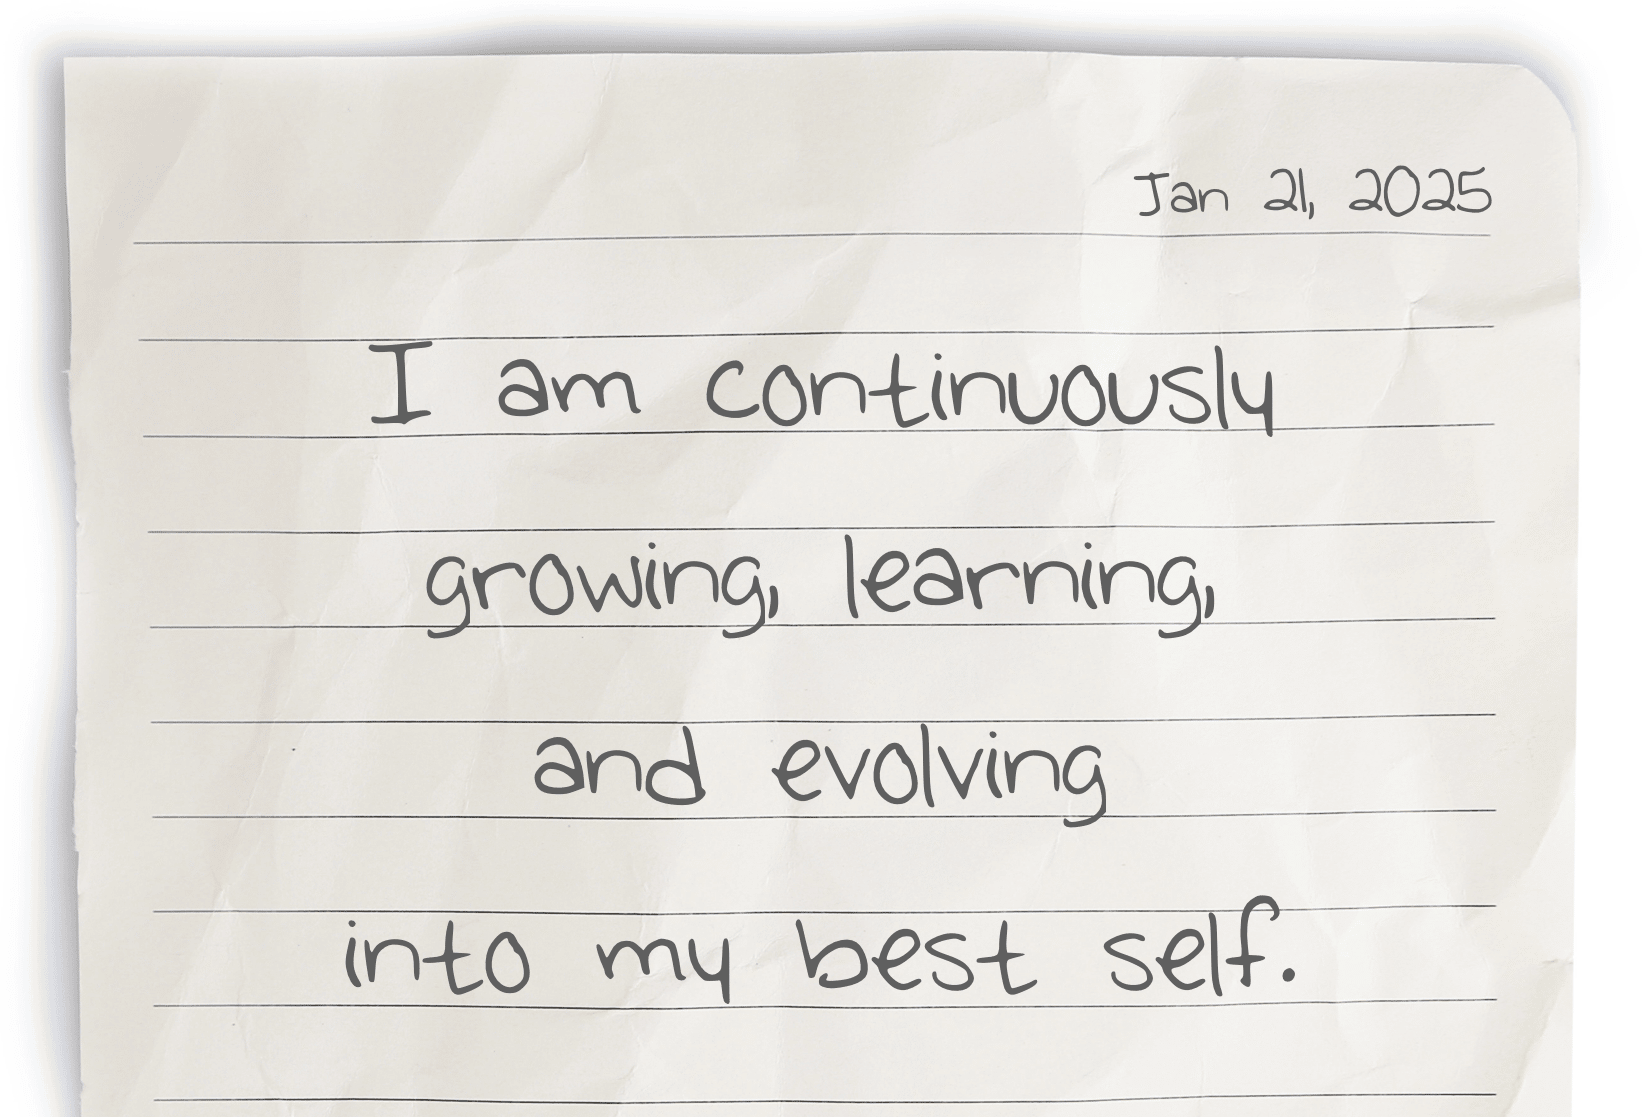 Jan 21, 2025
I am continuously
growing, learning,
and evolving
into my best self.